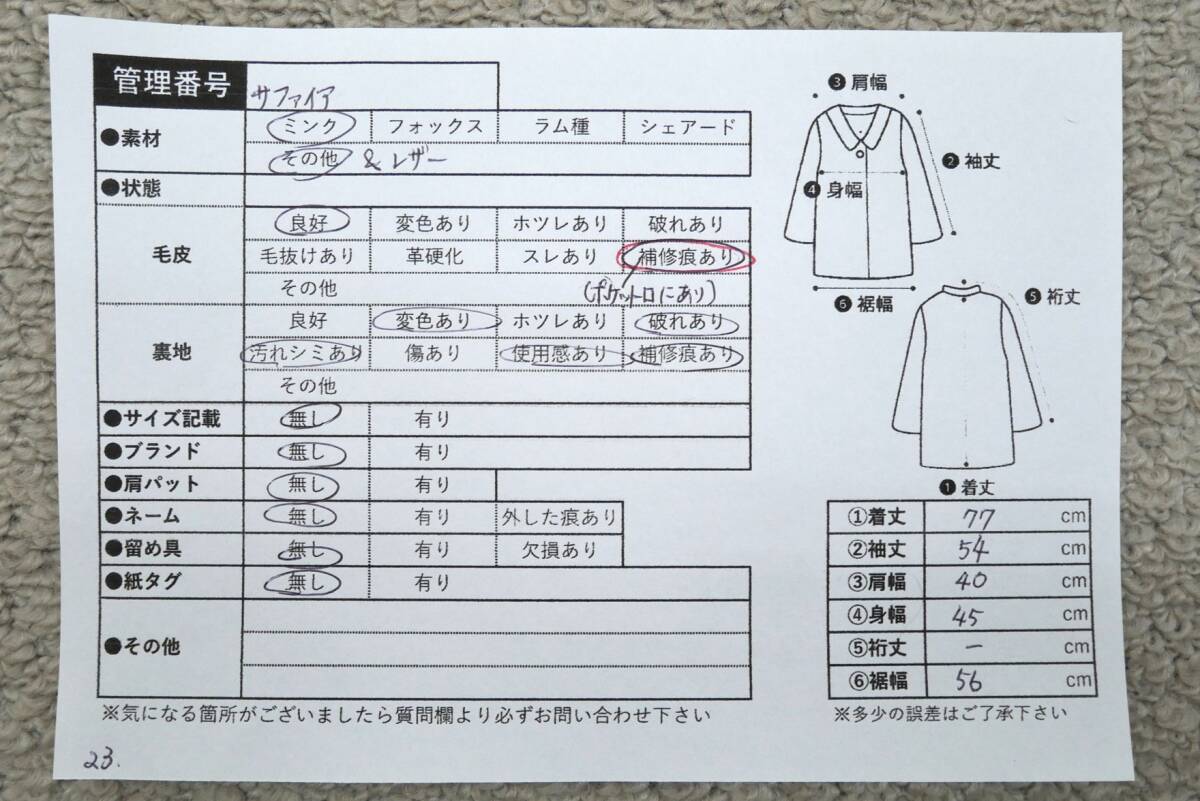 管理番号 サファイア
●素材 ミンク フォックス ラム種 シェアード
その他 & レザー
●状態
毛皮 良好 変色あり ホツレあり 破れあり
毛抜けあり 革硬化 スレあり 補修痕あり
その他 (ポケット口にあり)
裏地 良好 変色あり ホツレあり 破れあり
汚れシミあり 傷あり 使用感あり 補修痕あり
その他
●サイズ記載 無し 有り
●ブランド 無し 有り
●肩パット 無し 有り
●ネーム 無し 有り 外した痕あり
●留め具 無し 有り 欠損あり
●紙タグ 無し 有り
●その他
※気になる箇所がございましたら質問欄より必ずお問い合わせ下さい
23.
❸ 肩幅
❷ 袖丈
❹ 身幅
❻ 裾幅
❺ 裄丈
❶ 着丈
①着丈 77 cm
②袖丈 54 cm
③肩幅 40 cm
④身幅 45 cm
⑤裄丈 - cm
⑥裾幅 56 cm
※多少の誤差はご了承下さい